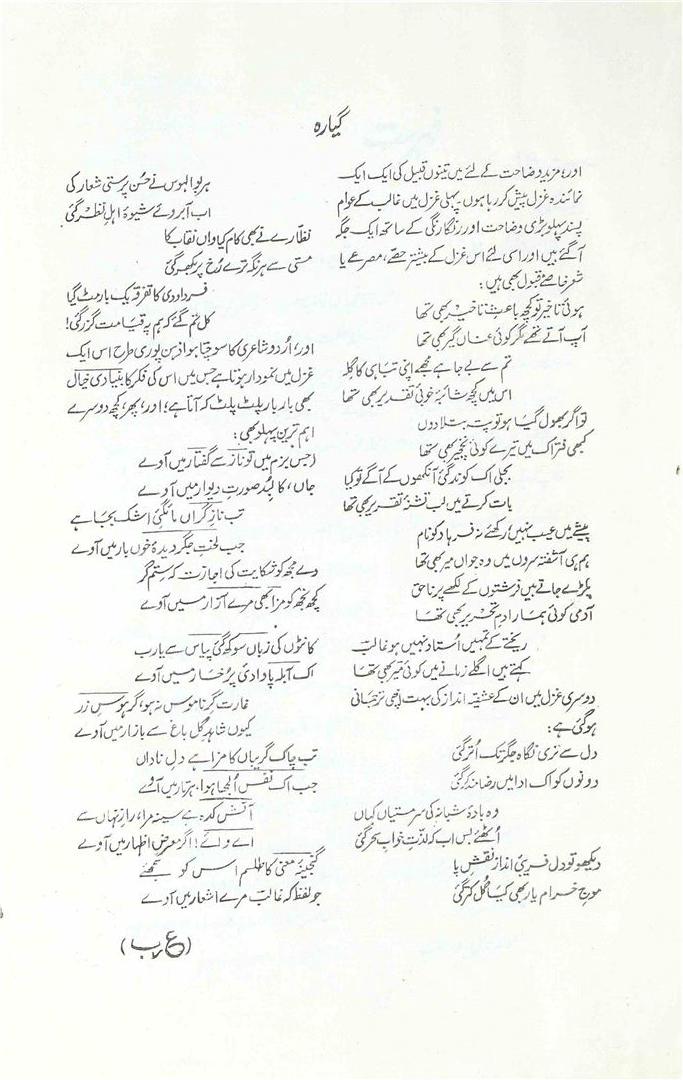 گیارہ
اور، مزید وضاحت کے لئے میں تینوں قبیل کی ایک ایک
نمائندہ غزل پیش کر رہا ہوں۔ پہلی غزل میں غالب کے عوام
پسند پہلو بڑی وضاحت اور رنگارنگی کے ساتھ ایک جگہ
آ گئے ہیں اور اسی لئے اس غزل کے بیشتر حصے، مصرعے یا
شعر خاصے مقبول بھی ہیں:
ہوئی تاخیر تو کچھ باعثِ تاخیر بھی تھا
آپ آتے تھے مگر کوئی عناں گیر بھی تھا
تم سے بے جا ہے مجھے اپنی تباہی کا گلہ
اس میں کچھ شائبۂ خوبیِ تقدیر بھی تھا
تو اگر بھول گیا ہو تو پتہ بتلا دوں
کبھی فتراک میں تیرے کوئی نخچیر بھی تھا
بجلی اک کوند گئی آنکھوں کے آگے تو کیا
بات کرتے میں لب تشنۂ تقریر بھی تھا
پیشے میں عیب نہیں، رکھئے نہ فرہاد کو نام
ہم ہی آشفتہ سروں میں وہ جواں میر بھی تھا
پکڑے جاتے ہیں فرشتوں کے لکھے پر ناحق
آدمی کوئی ہمارا دمِ تحریر بھی تھا
ریختے کے تمہیں استاد نہیں ہو غالبؔ
کہتے ہیں اگلے زمانے میں کوئی میرؔ بھی تھا
دوسری غزل میں ان کے عشقیہ انداز کی بہت اچھی ترجمانی
ہو گئی ہے:
دل سے تری نگاہ جگر تک اُتر گئی
دونوں کو اک ادا میں رضامند کر گئی
وہ بادۂ شبانہ کی سرمستیاں کہاں
اُٹھئے بس اب کہ لذّتِ خوابِ سحر گئی
دیکھو تو دل فریبیِ اندازِ نقشِ پا
موجِ خرامِ یار بھی کیا گل کتر گئی
ہر بوالہوس نے حُسن پرستی شعار کی
اب آبروئے شیوۂ اہلِ نظر گئی
نظّارے نے بھی کام کیا واں نقاب کا
مستی سے ہر نگہ ترے رُخ پر بکھر گئی
فردا و دی کا تفرقہ یک بار مٹ گیا
کل تم گئے کہ ہم پہ قیامت گزر گئی!
اور، اُردو شاعری کا سوچتا ہوا ذہن پوری طرح اس ایک
غزل میں نمودار ہوتا ہے جس میں اس کی فکر کا بنیادی خیال
بھی بار بار پلٹ پلٹ کر آتا ہے؛ اور، پھر، کچھ دوسرے
اہم ترین پہلو بھی:
(جس بزم میں تو ناز سے گفتار میں آوے
جاں، کالبدِ صورتِ دیوار میں آوے
تب نازِ گراں مائگیِ اشک بجا ہے
جب لختِ جگر دیدۂ خوں بار میں آوے
دے مجھ کو شکایت کی اجازت کہ ستمگر
کچھ تجھ کو مزا بھی مرے آزار میں آوے
کانٹوں کی زباں سوکھ گئی پیاس سے یا رب
اک آبلہ پا وادیِ پُر خار میں آوے
غارت گرِ ناموس نہ ہو، گر ہوسِ زر
کیوں شاہدِ گل باغ سے بازار میں آوے
تب چاکِ گریباں کا مزا ہے دلِ ناداں
جب اک نفس الجھا ہوا، ہر تار میں آوے
آتش کدہ ہے سینہ مرا، رازِ نہاں سے
اے وائے! اگر معرضِ اظہار میں آوے
گنجینۂ معنی کا طلسم اس کو سمجھئے
جو لفظ کہ غالبؔ مرے اشعار میں آوے